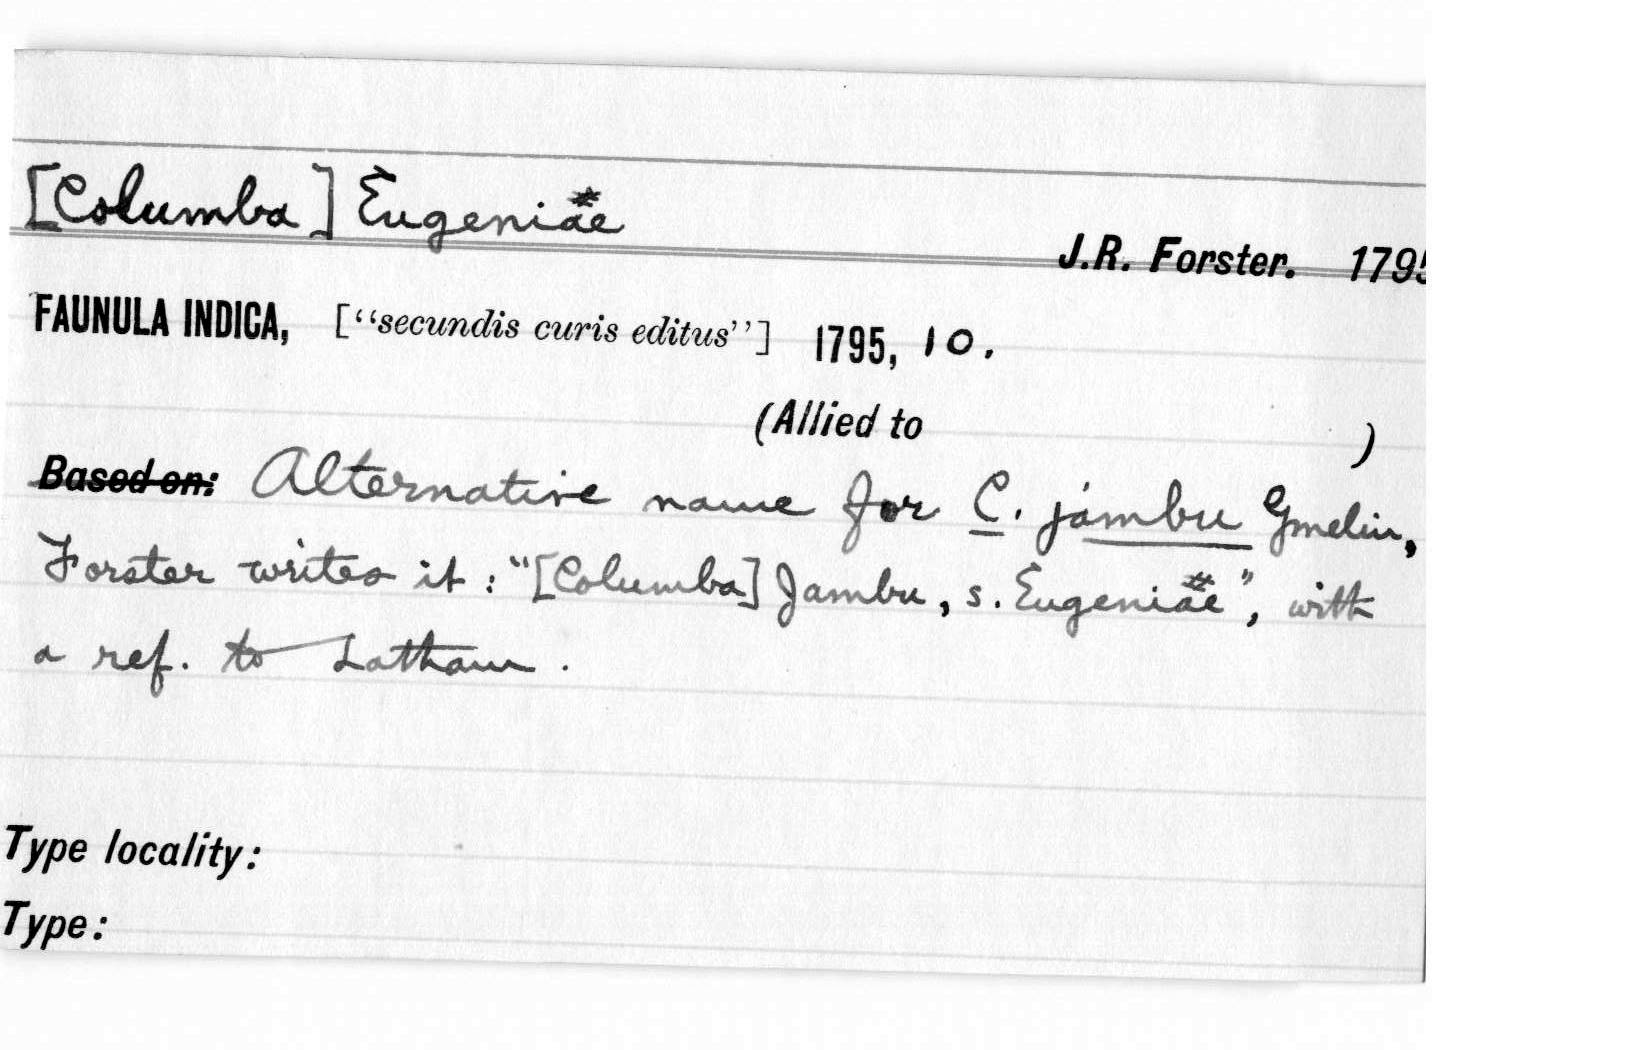 [Columba] Eugeniæ
J.R. Forster. 1795
FAUNULA INDICA, [“secundis curis editus”] 1795, 10.
(Allied to )
Based on: Alternative name for C. jambu Gmelin,
Forster writes it: "[Columba] Jambu, s. Eugeniæ", with
a ref. to Latham.
Type locality:
Type: